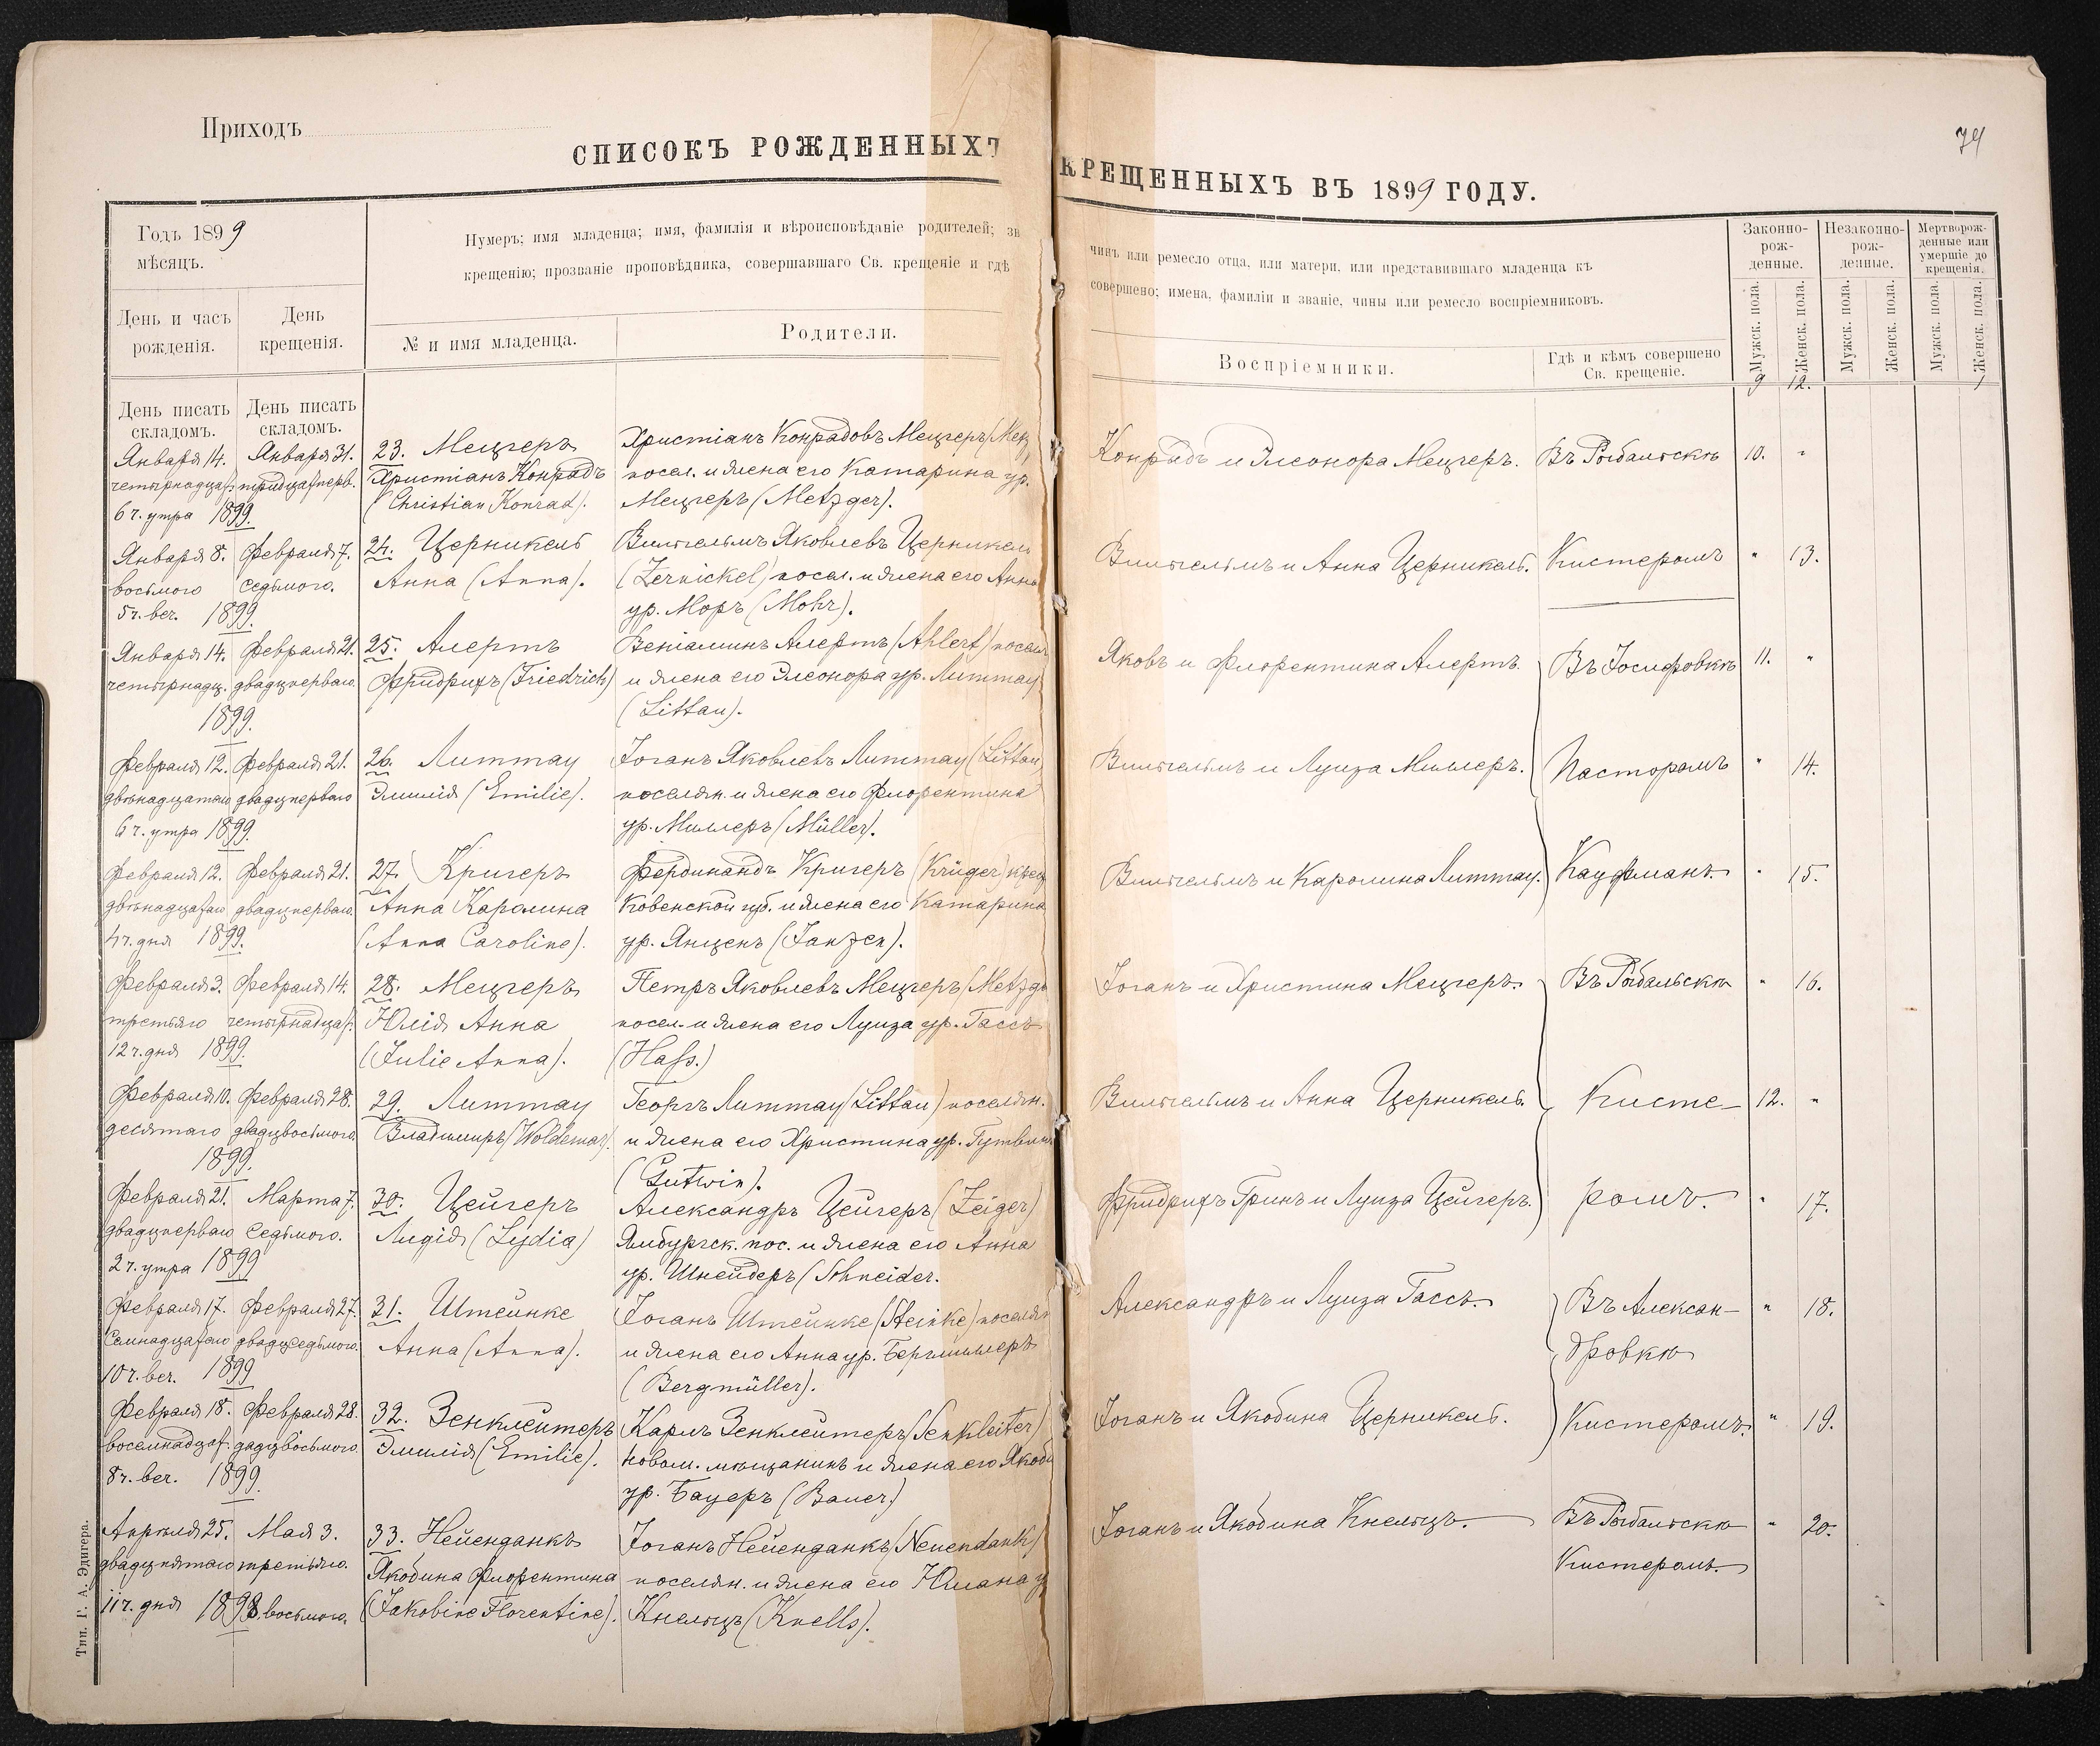 Приходъ
СПИСОКЪ РОЖДЕННЫХЪ
Годъ 1899
мѣсяцъ.
Нумеръ; имя младенца; имя, фамилія и вѣроисповѣданіе родителей; зв
крещенію; прозваніе проповѣдника, совершавшаго Св. крещеніе и гдѣ
День и часъ
рожденія.
День
крещенія.
№ и имя младенца.
Родители.
День писать
складомъ.
День писать
складомъ.
Января 14.
четырнадцат.
6 ч. утра 1899.
Января 31.
тридцат перв.
23. Мецгеръ
Христіанъ Конрадъ
(Christian Konrad).
Христіанъ Конрадовъ Мецгеръ (Metz
посел. и жена его Катарина ур.
Мецгеръ (Metzger).
Января 8.
восьмого
5 ч. веч. 1899.
Февраля 7.
седьмого.
24. Церникель
Анна (Anna).
Вильгельмъ Яковлевъ Церникель
(Zernickel) посел. и жена его Анна
ур. Моръ (Mohr).
Января 14.
четырнадц.
1899.
Февраля 21.
двадц перваго.
25. Алертъ
Фридрихъ (Friedrich)
Веніаминъ Алертъ (Ahlert) посел
и жена его Элеонора ур. Литтау
(Littau).
Февраля 12.
двѣнадцатаго
6 ч. утра 1899.
Февраля 21.
двадц перваго
26. Литтау
Эмилія (Emilie).
Іоганъ Яковлевъ Литтау (Littau
поселян. и жена его Флорентина
ур. Миллеръ (Müller).
Февраля 12.
двѣнадцатаго
4 ч. дня 1899.
Февраля 21.
двадц перваго.
27. Кригеръ
Анна Каролина
(Anna Caroline).
Фердинандъ Кригеръ (Krüger) крес
Ковенской губ. и жена его Катарина
ур. Янценъ (Janzen).
Февраля 3.
третьяго
12 ч. дня 1899.
Февраля 14.
четырнадцат.
28. Мецгеръ
Юлія Анна
(Julie Anna).
Петръ Яковлевъ Мецгеръ (Metzge
посел. и жена его Луиза ур. Гассъ
(Hass.)
Февраля 10.
десятаго
1899.
Февраля 28.
двадц восьмого.
29. Литтау
Владимиръ (Woldemar).
Георгъ Литтау (Littau) поселян.
и жена его Христина ур. Гутвинъ
(Gutwin).
Февраля 21.
двадц перваго
2 ч. утра 1899
Марта 7.
седьмого.
30. Цейгеръ
Лидія (Lydia)
Александръ Цейгеръ (Zeiger)
Ямбургск. пос. и жена его Анна
ур. Шнейдеръ (Schneider.
Февраля 17.
семнадцатаго
10 ч. веч. 1899
Февраля 27.
двадц седьмого.
31. Штейнке
Анна (Anna).
Іоганъ Штейнке (Steinke) поселян
и жена его Анна ур. Бергмиллеръ
(Bergmüller).
Февраля 18.
восемнадцат.
8 ч. веч. 1899.
Февраля 28.
дадц восьмого.
32. Зенклейтеръ
Эмилія (Emilie).
Карлъ Зенклейтеръ (Senkleiter)
Новом. мѣщанинъ и жена его Якоби
ур. Бауеръ (Bauer)
Апрѣля 25.
двадц пятаго
11 ч. дня 1898 восьмого.
Мая 3.
третьяго.
33. Нейенданкъ
Якобина Флорентина
(Jakobine Florentine).
Іоганъ Нейенданкъ (Neuendank)
поселян. и жена его Юлiана у
Кнельцъ (Knells).
Тип. Г. А. Эдигера.
74
КРЕЩЕННЫХЪ ВЪ 1899 ГОДУ.
чинъ или ремесло отца, или матери, или представившаго младенца къ
совершено; имена, фамиліи и званіе, чины или ремесло воспріемниковъ.
Воспріемники.
Гдѣ и кѣмъ совершено
Св. крещеніе.
Законно-
рож-
денные.
Незаконно-
рож-
денные.
Мертворож-
денные или
умершіе до
крещенія.
Мужск. пола.
Женск. пола.
Мужск. пола.
Женск. пола.
Мужск. пола.
Женск. пола.
9 12. 1
Конрадъ и Элеонора Мецгеръ. Въ Рыбальскѣ 10. "
Вильгельмъ и Анна Церникель. Кистеромъ " 13.
Яковъ и Флорентина Алертъ. Въ Іосифовкѣ 11. "
Вильгельмъ и Луиза Миллеръ. Пасторомъ " 14.
Вильгельмъ и Каролина Литтау. Кауфманъ. " 15.
Іоганъ и Христина Мецгеръ. Въ Рыбальскѣ " 16.
Вильгельмъ и Анна Церникель. Кисте- 12. "
Фридрихъ Гринъ и Луиза Цейгеръ. ромъ. " 17.
Александръ и Луиза Гассъ. Въ Алексан- " 18.
дровкѣ
Іоганъ и Якобина Церникель. Кистеромъ. " 19.
Іоганъ и Якобина Кнельцъ. Въ Рыбальскѣ " 20.
Кистеромъ.